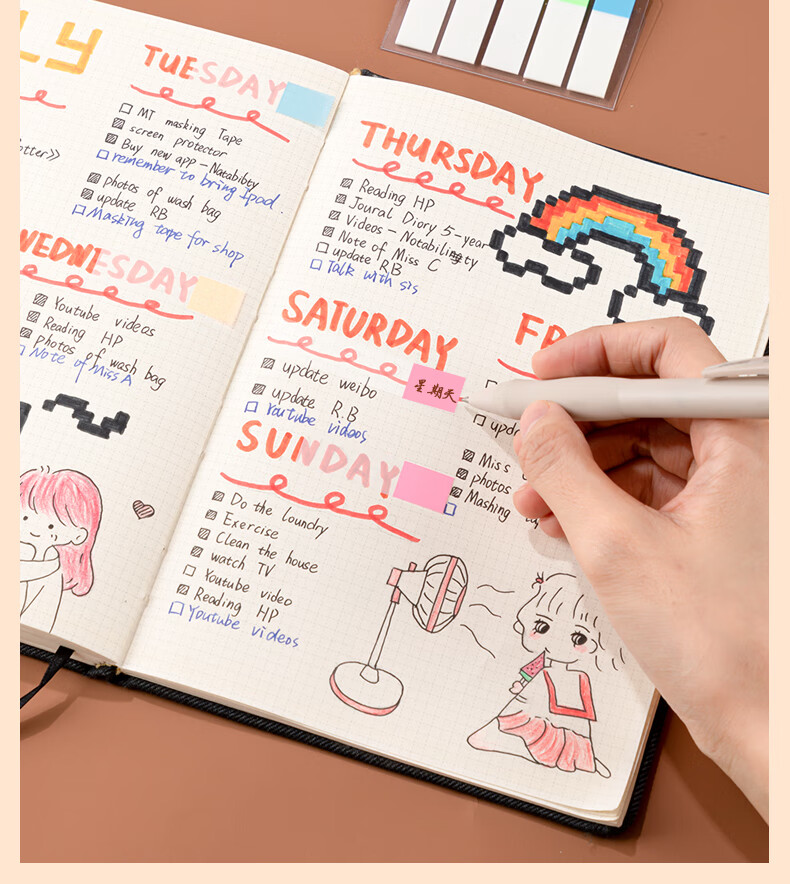 LY
otter》
TUESDAY
MT masking Tape
screen protector
Buy new app - Natabibty
remember to bring Ipad.
photos of wash bag
update RB
Masking tape for shop
WEDNESDAY
Youtube videos
Reading HP
photos of wash bag
Note of Miss A
THURSDAY
Reading HP
Joural Diory 5-year
Videos - Notability
Note of Miss C
update RB
Talk with sis
SATURDAY
update weibo
星期天
update R.B
Youtube videos
FR
upd
Miss
photos
Mashing
SUNDAY
Do the loundry
Exercise
Clean the house
watch TV
Youtube video
Reading HP
Youtube videos